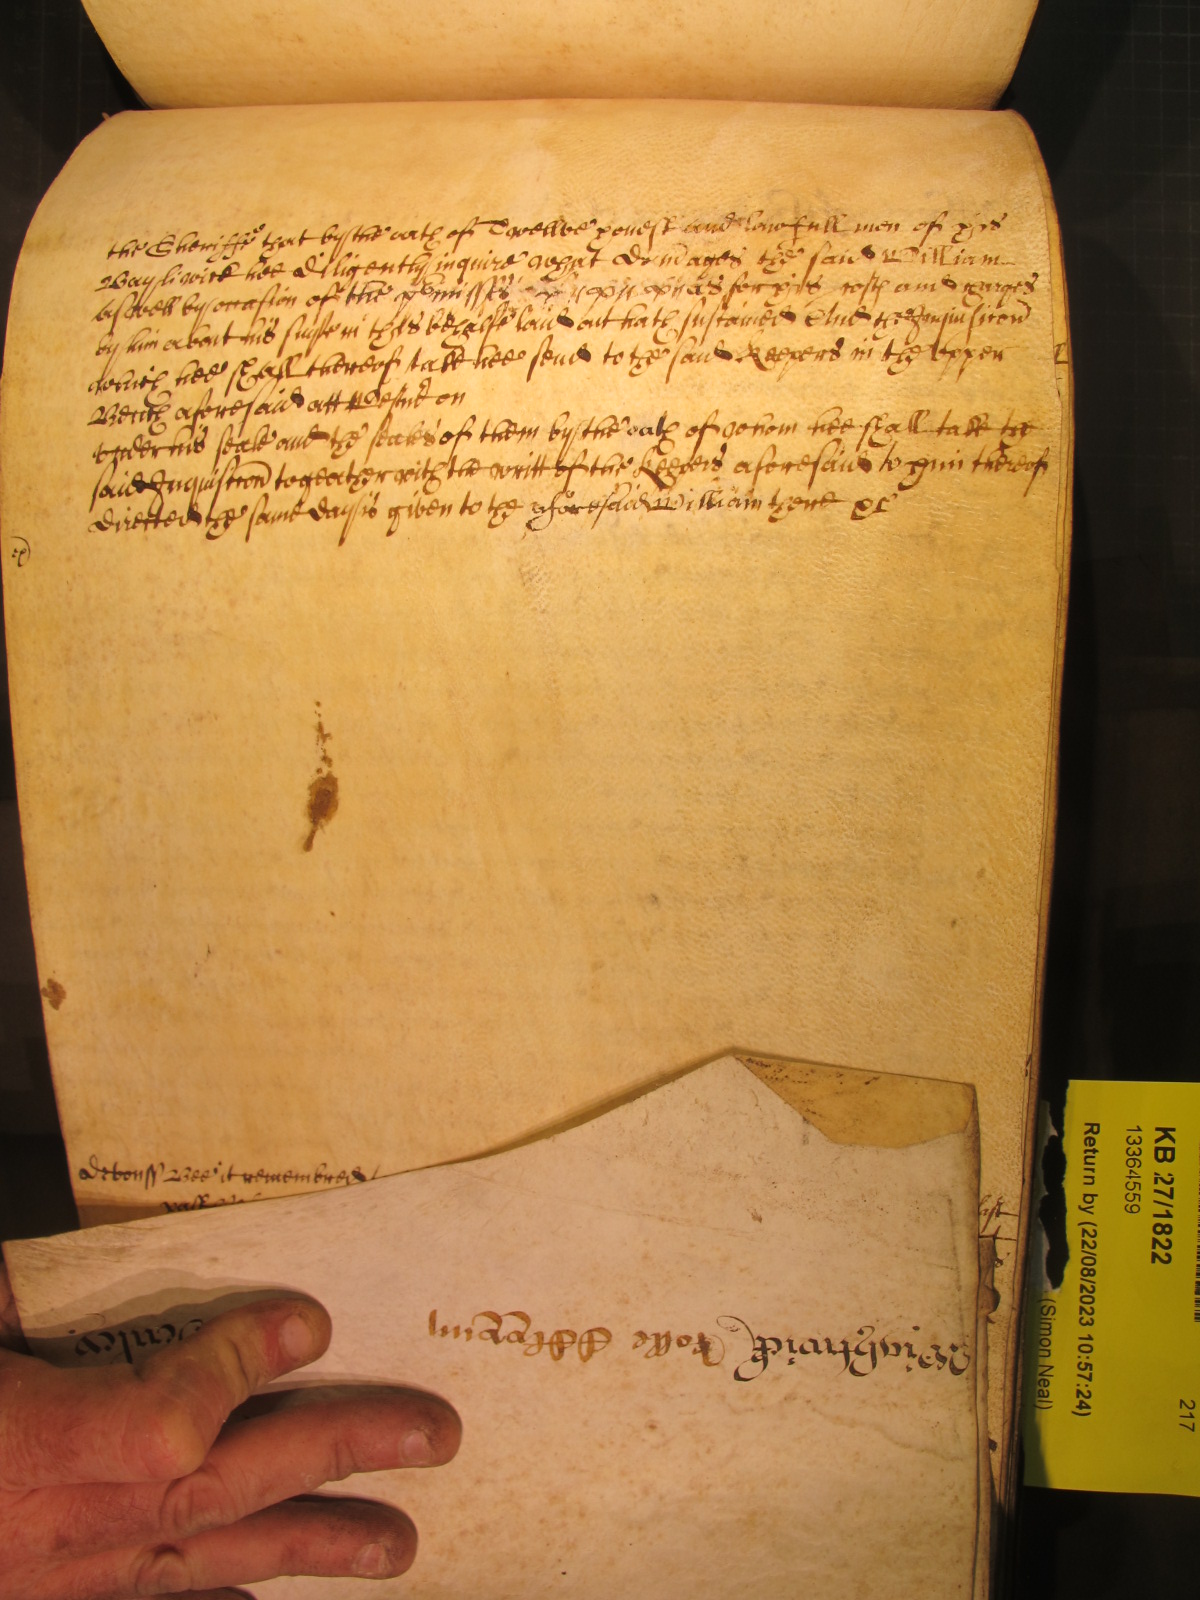 the Sheriffe that by the oath of Twellve honest and lawfull men of his
Bayliwick hee diligently inquire what damages the said William
aswell by occasion of the premisses as for his costs and charges
by him about his suite in this behalfe laid out hath sustained And the Inquisicon
which hee shall thereof take hee send to the said Keepers in the upper
Bench aforesaid att Westmr on
under his seale and the seales of them by the oath of whom hee shall take the
said Inquisicon togeather with the writt of the Keepers aforesaid to him thereof
directed the same day is given to the aforesaid William there &c
Devonss Bee it remembred
last
Wightwick Rolle
Henley
KB 27/1822
13364559
Return by (22/08/2023 10:57:24)
(Simon Neal)
217